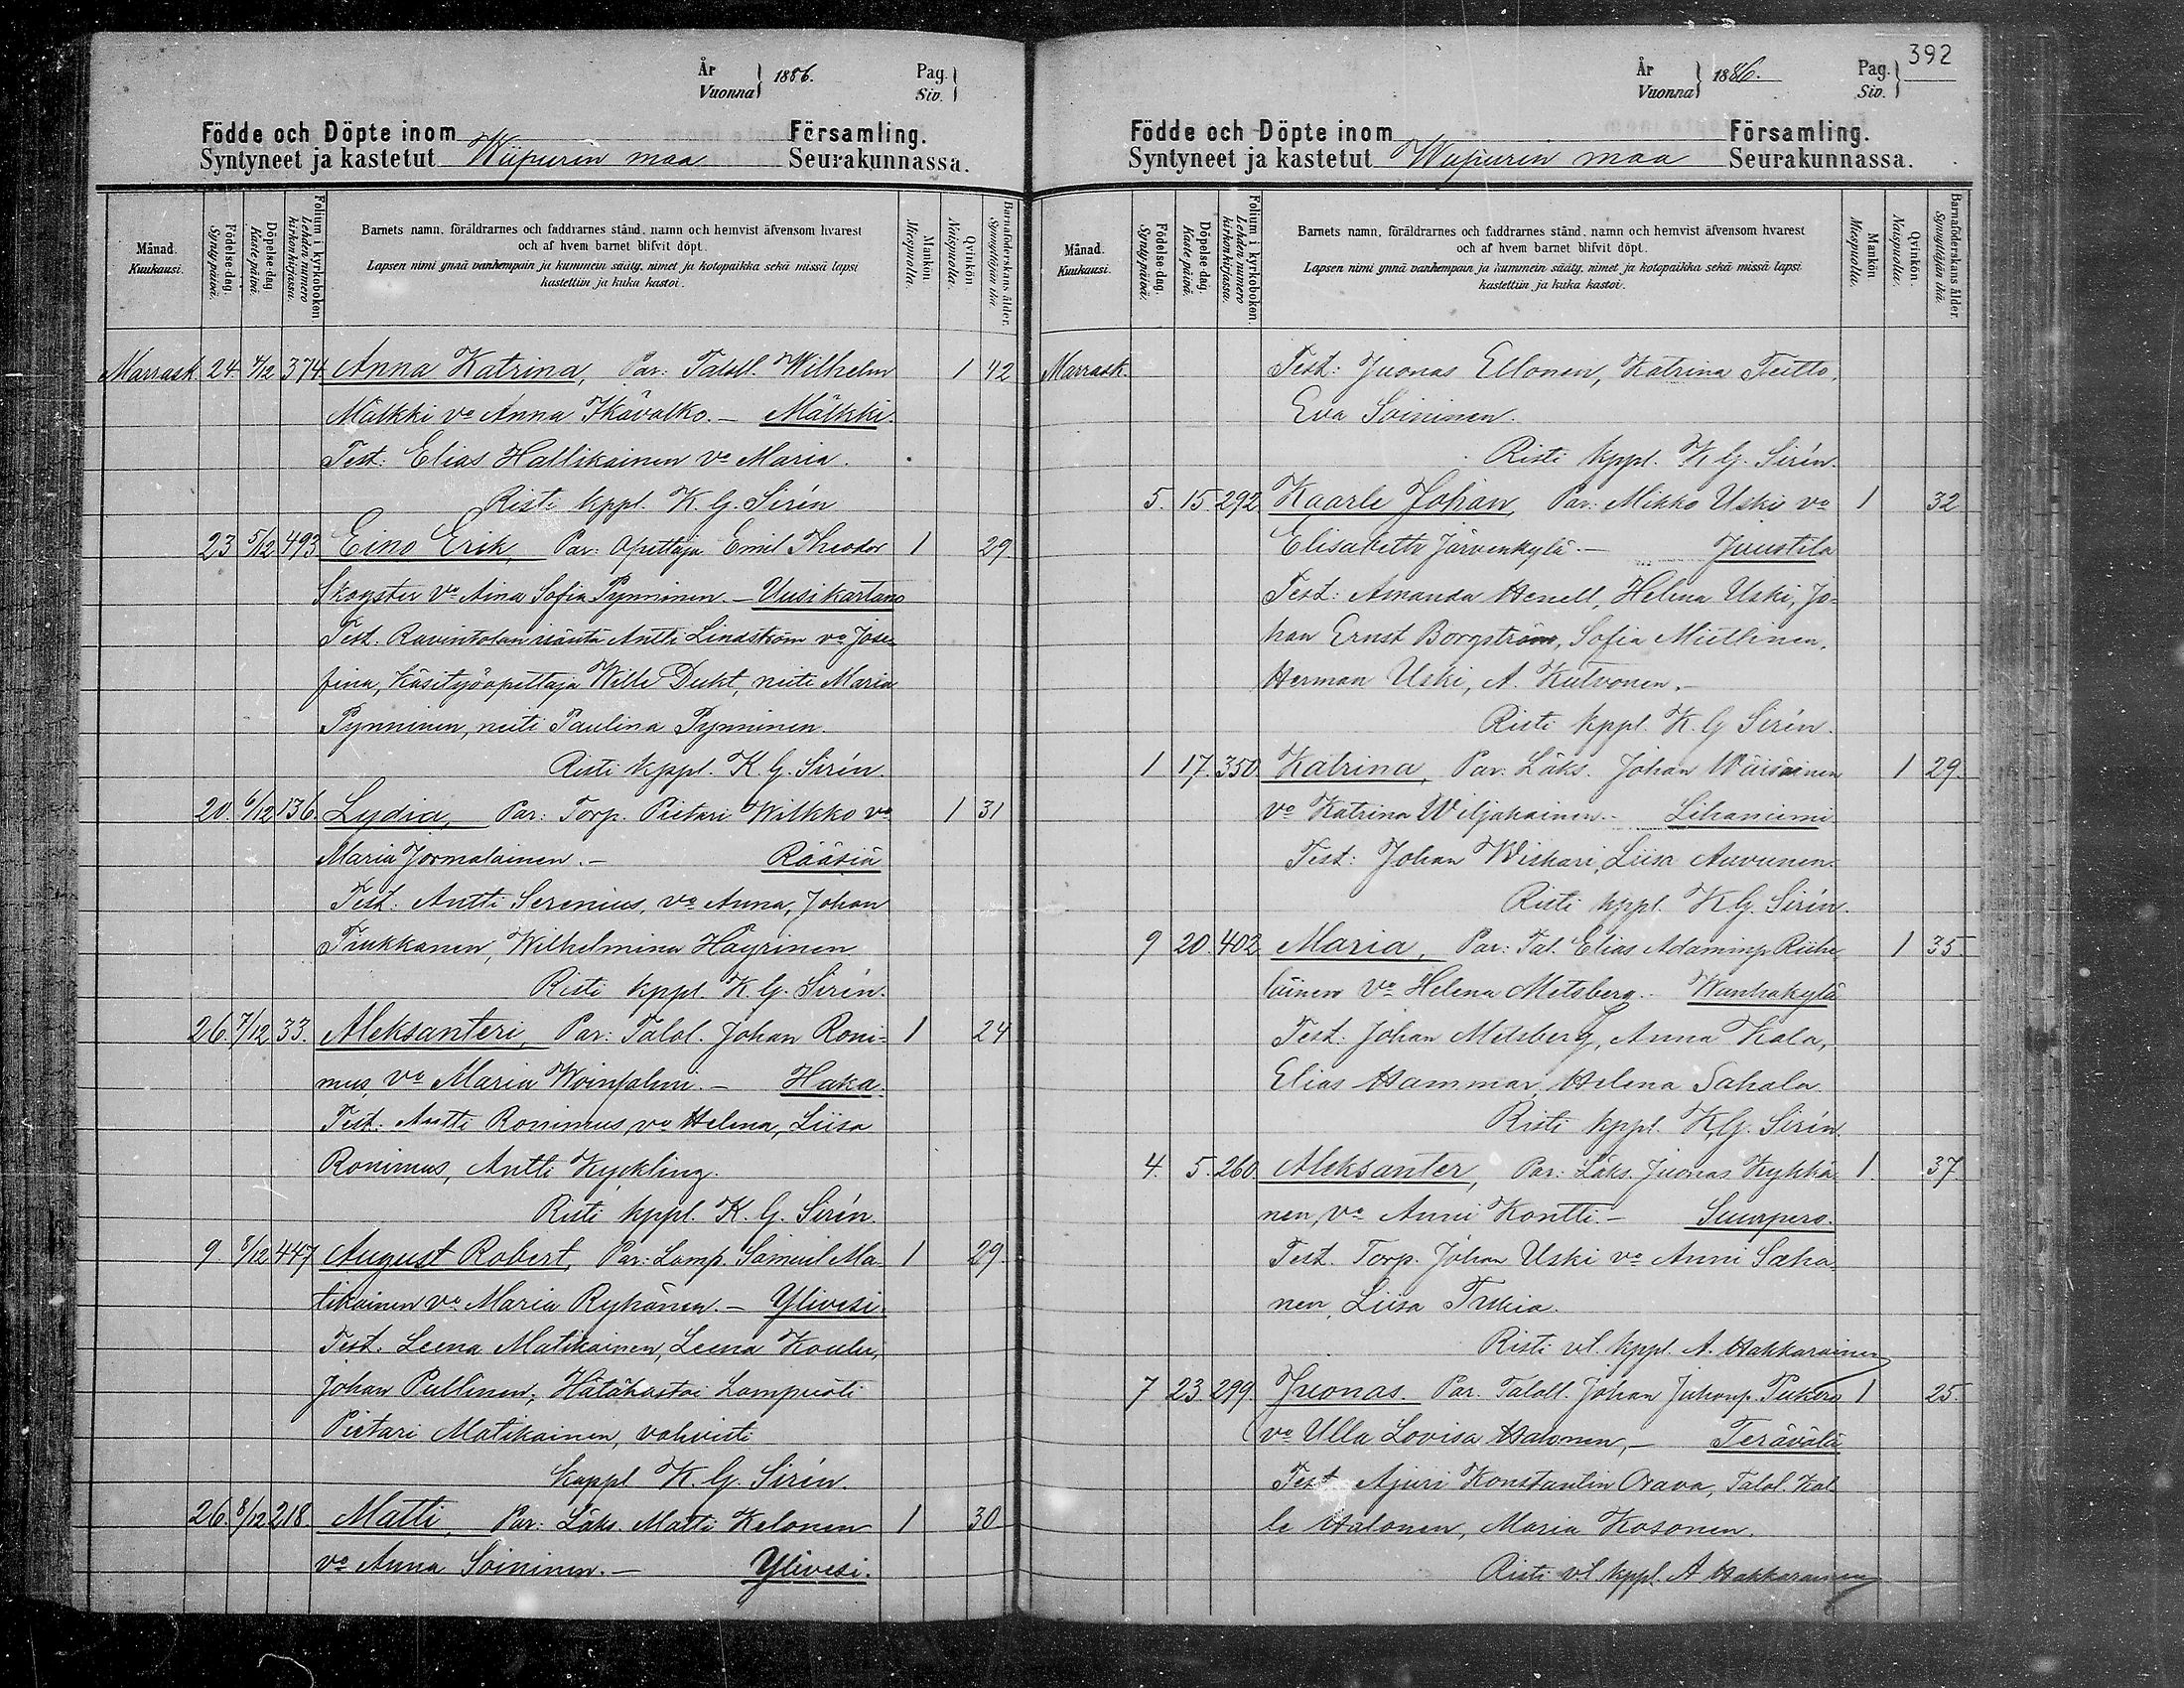 År
Vuonna } 1886.
Pag.
Siv. }
Födde och Döpte inom Församling.
Syntyneet ja kastetut Wiipurin maa Seurakunnassa.
Månad.
Kuukausi.
Födelse-dag.
Synty päivä.
Döpelse-dag.
Kaste päivä.
Folium i kyrkoboken.
Lehden numero
kirkon kirjassa.
Barnets namn, föräldrarnes och faddrarnes stånd, namn och hemvist äfvensom hvarest
och af hvem barnet blifvit döpt.
Lapsen nimi ynnä vanhempain ja kummein sääty, nimet ja kotopaikka sekä missä lapsi
kastettiin ja kuka kastoi.
Mankön.
Miespuolta.
Qvinkön.
Naispuolta.
Barnaföderskans ålder.
Synnyttäjän ikä.
Marrask. 24 4/12 374 Anna Katrina, Par: Taloll. Wilhelm 1 42
Mälkki vo Anna Ikävalko. – Mälkki.
Test: Elias Hallikainen vo Maria.
Risti kppl. K. G. Sirén
23 5/12 493 Eino Erik, Par: Opettaja Emil Theodor 1 29
Skogster vo Aina Sofia Pynninen. – Uusikartano
Test. Ravintolan isäntä Antti Lindström vo Jose-
fina, Käsityöopettaja Wille Dukt, neiti Maria
Pynninen, neiti Paulina Pynninen.
Risti kppl. K. G. Sirén.
20. 6/12 136. Lydia, Par: Torp. Pietari Wilkko vo 1 31
Maria Jormalainen. – Rääsiä
Test: Antti Serenius, vo Anna, Johan
Tiukkanen, Wilhelmina Häyrinen
Risti kppl. K. G. Sirén.
26. 7/12 33. Aleksanteri, Par: Talol. Johan Roni- 1 24
mus, vo Maria Woinsalmi. – Haka.
Test. Antti Ronimus, vo Helena, Liisa
Ronimus, Antti Kyckling.
Risti kppl. K. G. Sirén.
9. 8/12 447 August Robert, Par: Lamp. Samuel Ma- 1 29.
tikainen vo Maria Rykänen. – Ylivesi.
Test. Leena Matikainen, Leena
Johan Pullinen; Hätäkastoi Lampuoti
Pietari Matikainen, vahvisti
kappl K. G. Sirén.
26. 8/12 218. Matti, Par: Läks. Matti Kelonen 1 30
vo Anna Soininen. – Ylivesi.
392
År
Vuonna } 1886.
Pag.
Siv. }
Födde och Döpte inom Församling.
Syntyneet ja kastetut Wiipurin maa Seurakunnassa.
Månad.
Kuukausi.
Födelse-dag.
Synty päivä.
Döpelse-dag.
Kaste päivä.
Folium i kyrkoboken.
Lehden numero
kirkon kirjassa.
Barnets namn, föräldrarnes och faddrarnes stånd, namn och hemvist äfvensom hvarest
och af hvem barnet blifvit döpt.
Lapsen nimi ynnä vanhempain ja kummein sääty, nimet ja kotopaikka sekä missä lapsi
kastettiin ja kuka kastoi.
Mankön.
Miespuolta.
Qvinkön.
Naispuolta.
Barnaföderskans ålder.
Synnyttäjän ikä.
Marrask. Test: Juonas Ellonen, Katrina Teitto,
Eva Soininen.
Risti kppl. K. G. Sirén.
5. 15. 292 Kaarle Johan, Par: Mikko Uski vo 1 32
Elisabeth Järvenkylä. – Juustila
Test: Amanda Henell, Helena Uski, Jo-
han Ernst Borgström, Sofia Miettinen,
Herman Uski, A. Kutvonen.
Risti kppl. K. G Sirén.
1 17. 350 Katrina, Par: Läks. Johan Wäisäinen 1 29.
vo Katrina Wiljakainen. – Lihaniemi
Test: Johan Wiskari, Liisa Auvunen.
Risti kppl. K. G. Sirén.
9 20. 402 Maria, Par: Tal. Elias Adaminp. Riihe- 1 35.
läinen vo Helena Metsberg. – Wanhakylä
Test: Johan Metsberg, Anna Kala,
Elias Hammar, Helena Sahala
Risti kppl. K. G. Sirén.
4. 5. 260. Aleksanter, Par: Läks. Juonas Kykkä- 1. 37.
nen, vo Anni Kontti. – Suurpero.
Test. Torp. Johan Uski vo Anni Saha-
nen, Liisa
Risti vl. kppl. A. Hakkarainen
7 23. 299. Juonas. Par. Taloll. Johan Juhonp. Pukero 1 25.
vo Ulla Lovisa Halonen, – Terävälä
Test. Ajuri Konstantin Orava, Talol. Kal-
le Halonen, Maria Kosonen.
Risti vl. kppl. A Hakkarainen